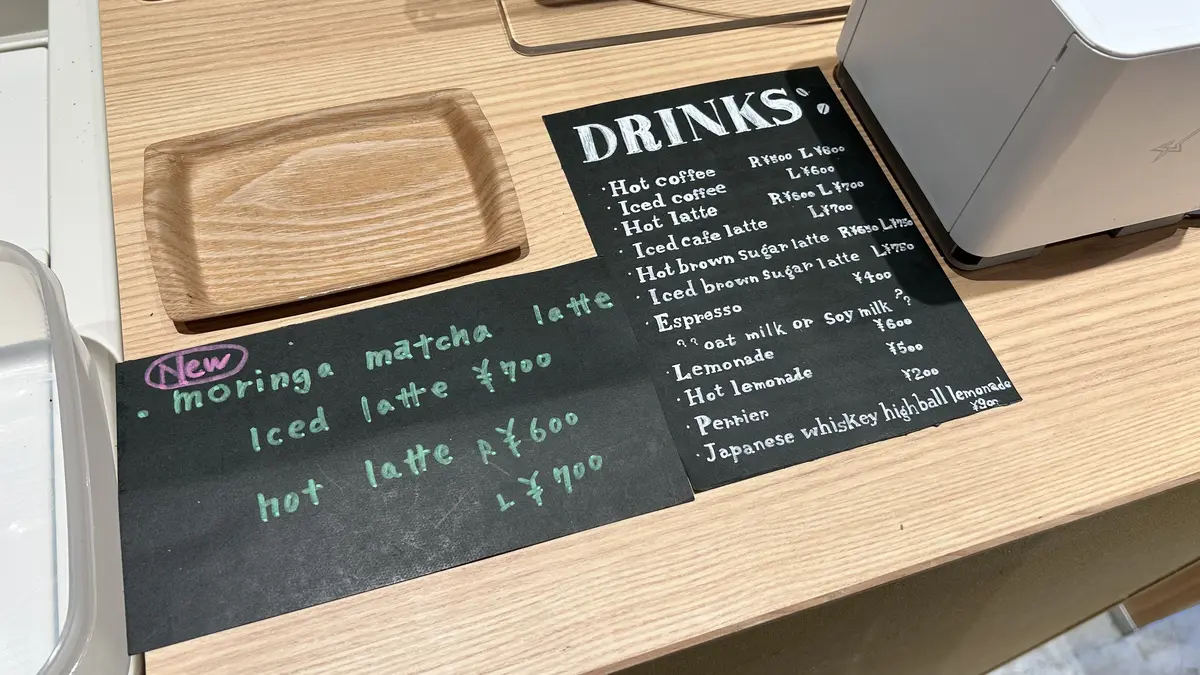 DRINKS
· Hot coffee R¥500 L¥600
· Iced coffee L¥600
· Hot latte R¥600 L¥700
· Iced cafe latte L¥700
· Hot brown sugar latte R¥650 L¥750
· Iced brown sugar latte L¥750
· Espresso ¥400
?? oat milk or soy milk ??
· Lemonade ¥600
· Hot lemonade ¥500
· Perrier ¥200
· Japanese whiskey highball lemonade
¥900
New
· moringa matcha latte
Iced latte ¥700
hot latte R¥600
L¥700